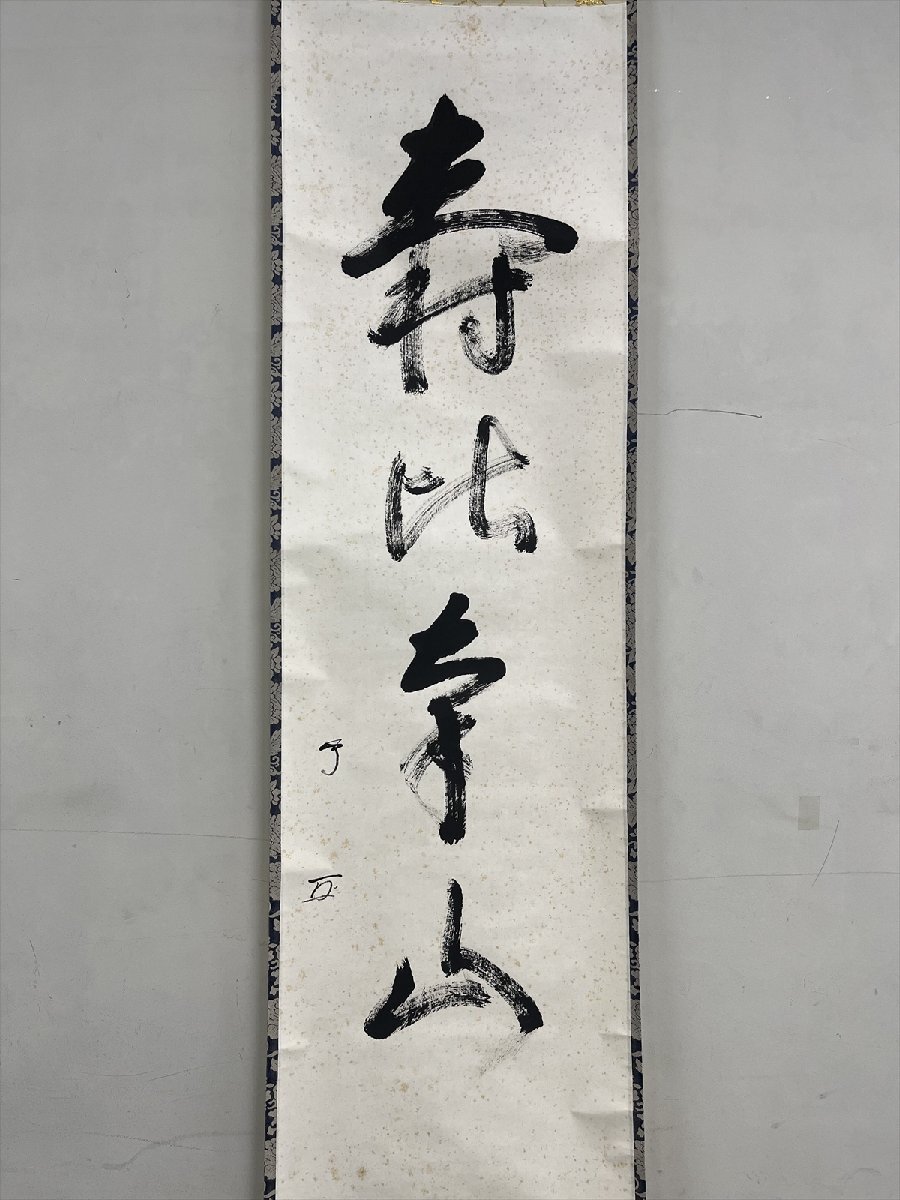 寿比南山